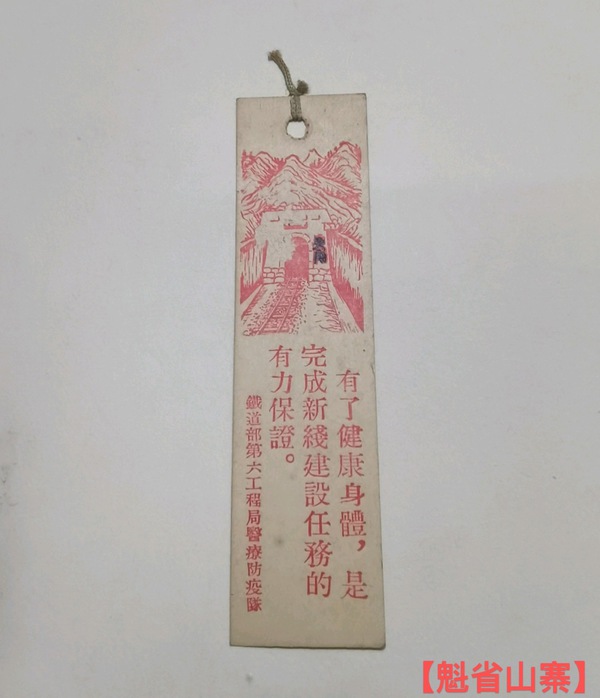 有了健康身體，是
完成新綫建設任務的
有力保證。
鐵道部第六工程局醫療防疫隊
【魁省山寨】